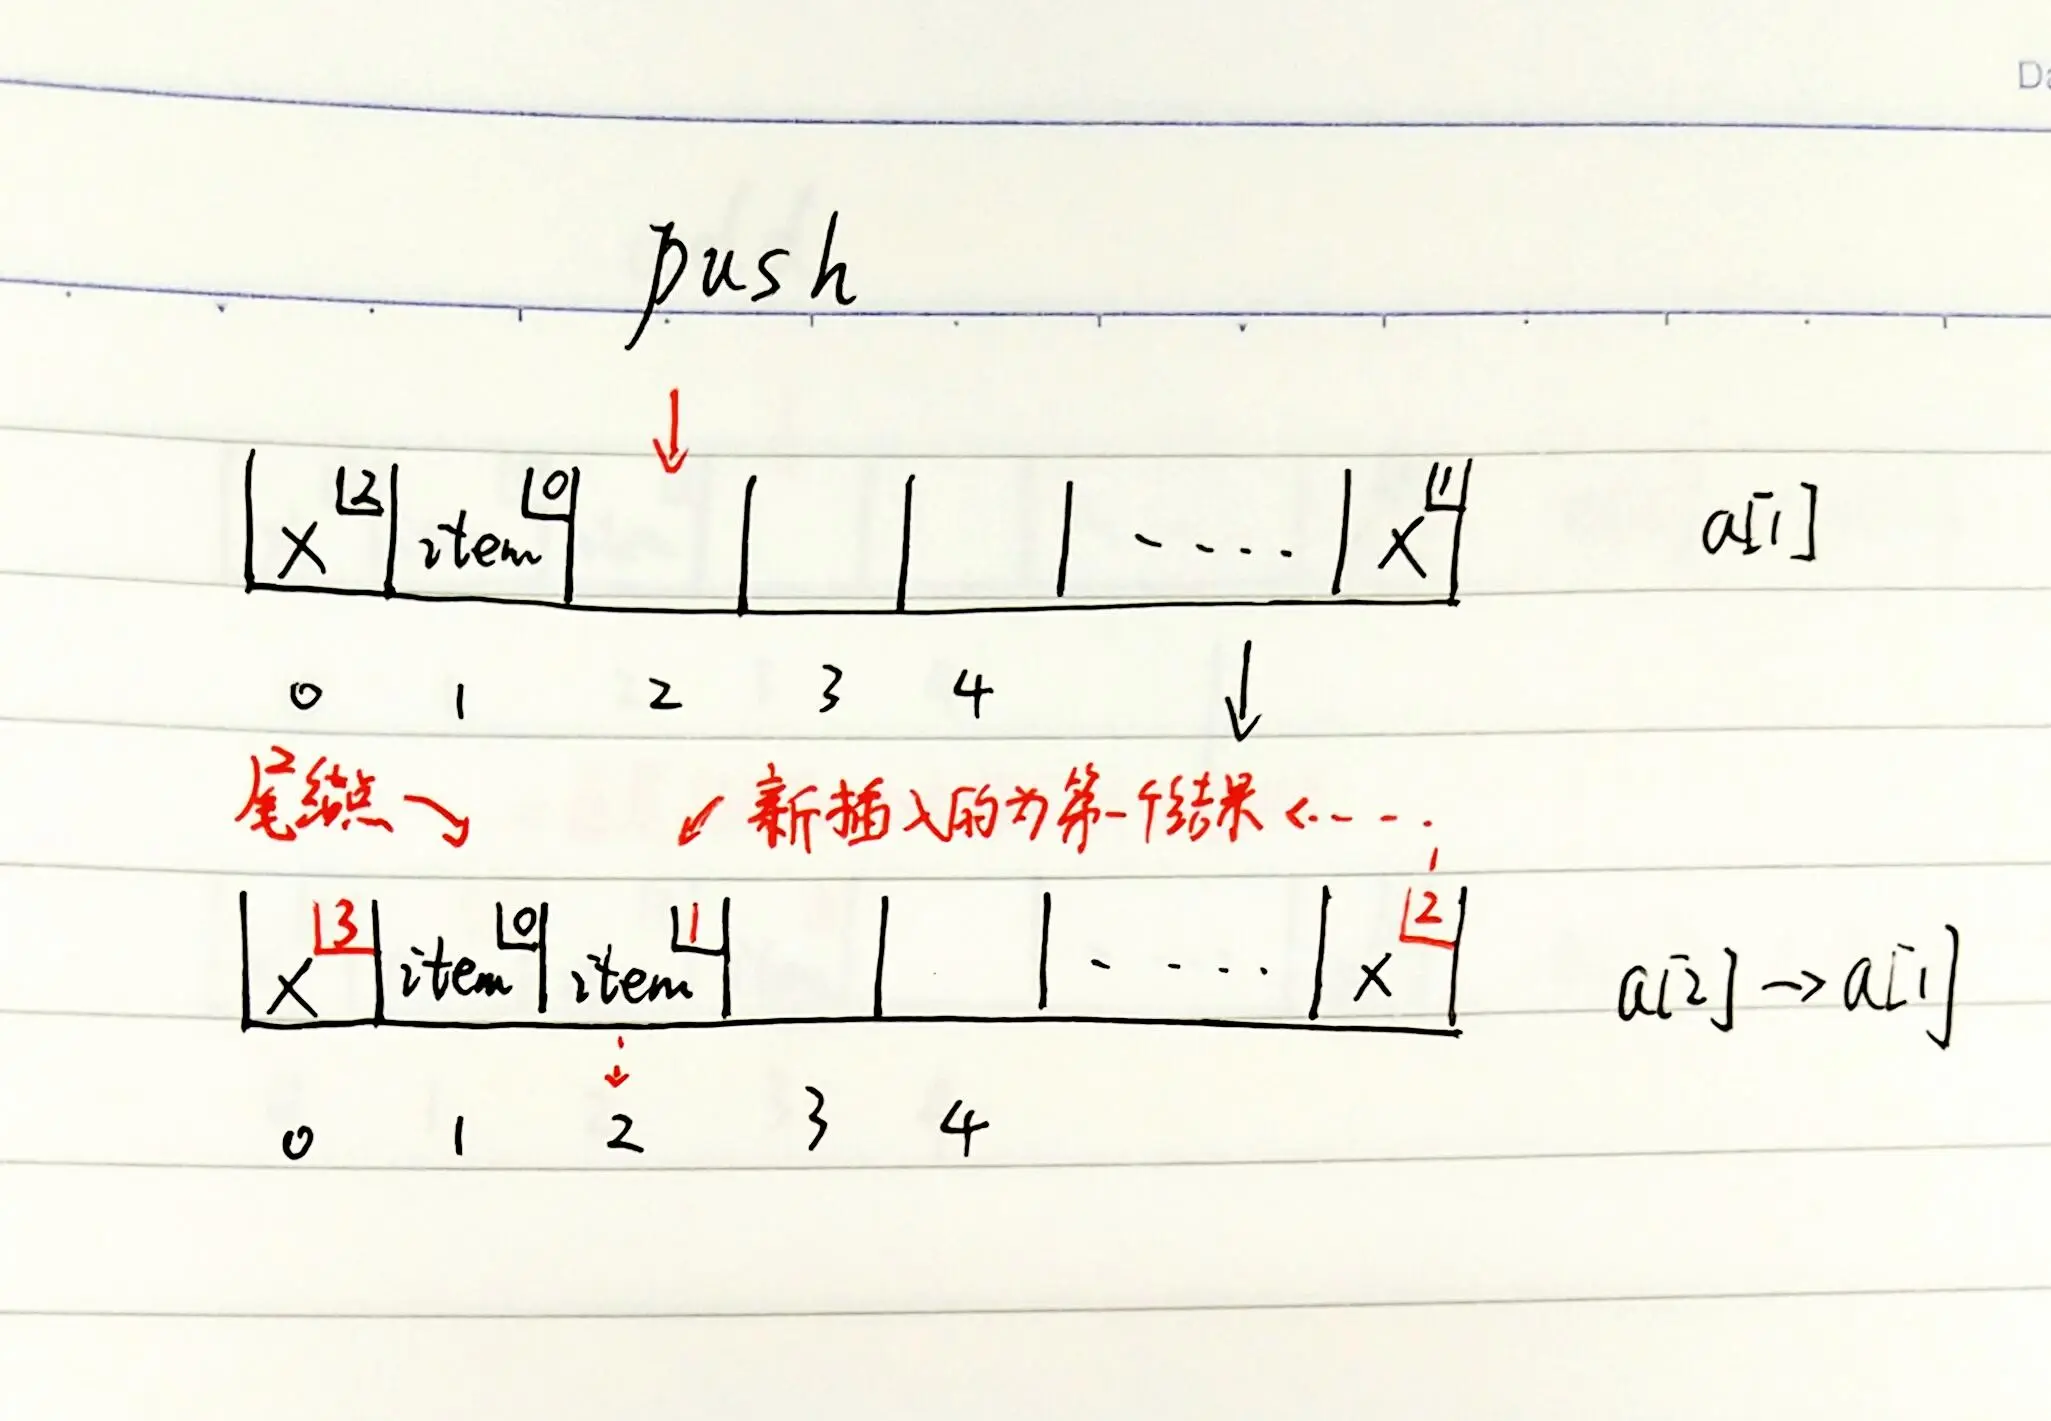 Da
push
x 2 item 0 ..... x 1 a[1]
0 1 2 3 4
尾结点 新插入的为第一个结果
x 3 item 0 item 1 ..... x 2 a[2] → a[1]
0 1 2 3 4